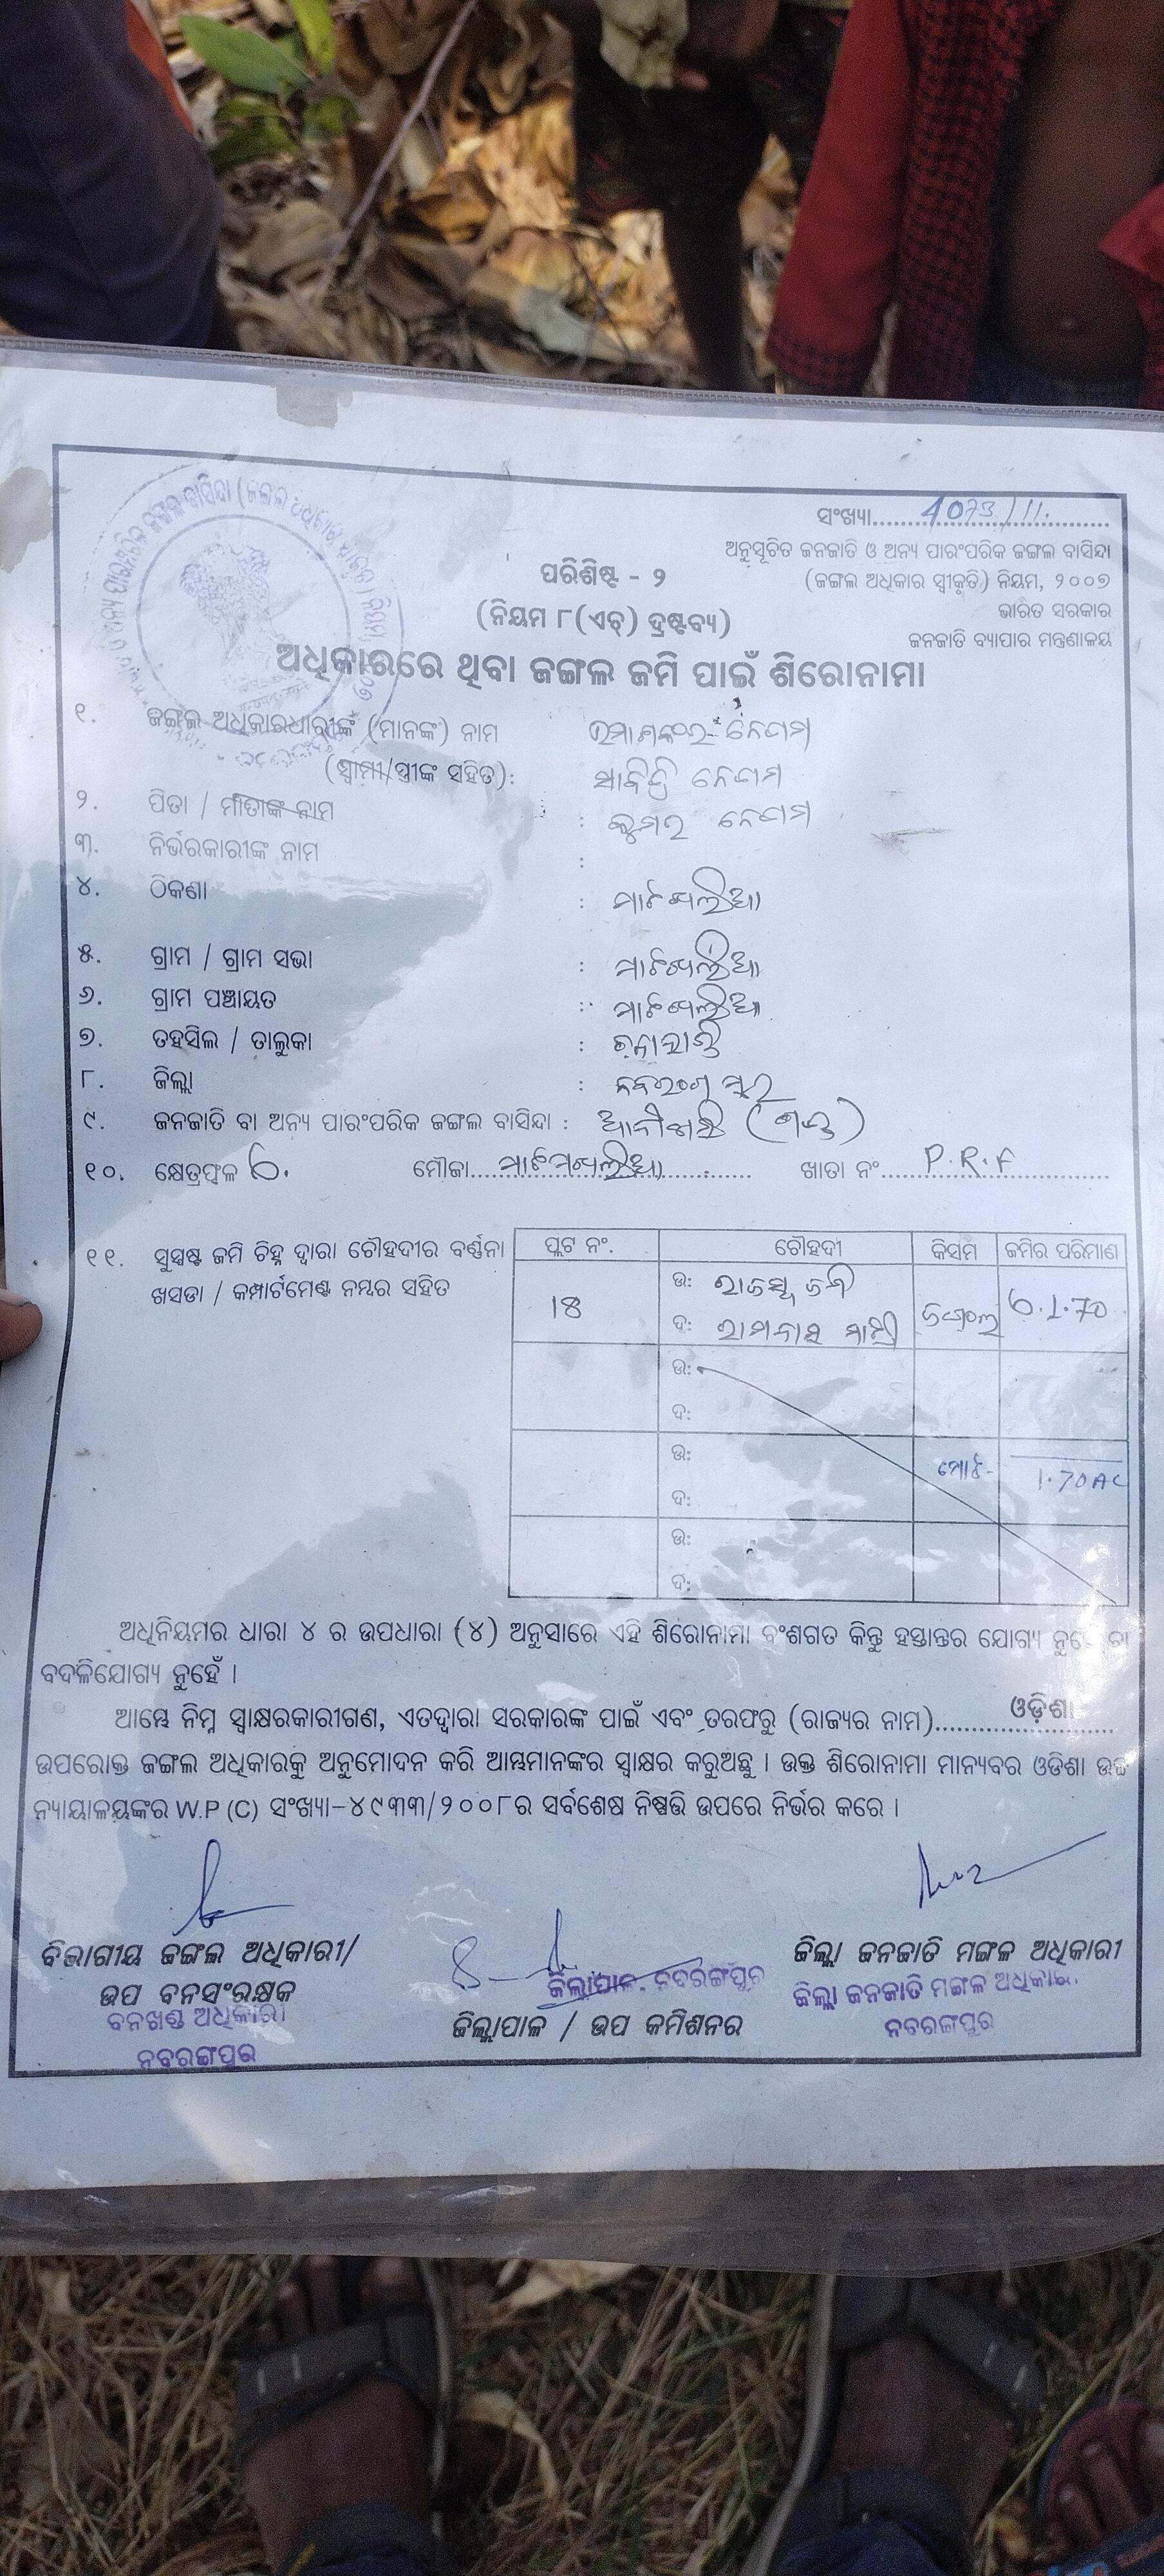 ସଂଖ୍ୟା.....4073/11.
ଅନୁସୂଚିତ ଜନଜାତି ଓ ଅନ୍ୟ ପାରଂପରିକ ଜଙ୍ଗଲ ବାସିନ୍ଦା
(ଜଙ୍ଗଲ ଅଧିକାର ସ୍ୱୀକୃତି) ନିୟମ, ୨୦୦୭
ଭାରତ ସରକାର
ଜନଜାତି ବ୍ୟାପାର ମନ୍ତ୍ରଣାଳୟ
ପରିଶିଷ୍ଟ - ୨
(ନିୟମ ୮(ଏଚ୍) ଦ୍ରଷ୍ଟବ୍ୟ)
ଅଧିକାରରେ ଥିବା ଜଙ୍ଗଲ ଜମି ପାଇଁ ଶିରୋନାମା
୧. ଜଙ୍ଗଲ ଅଧିକାରଧାରୀଙ୍କ (ମାନଙ୍କ) ନାମ ଉମାଶଙ୍କର ନେତାମ
(ସ୍ୱାମୀ/ସ୍ତ୍ରୀଙ୍କ ସହିତ): ସାବିତ୍ରି ନେତାମ
୨. ପିତା / ମାତାଙ୍କ ନାମ : କୁମର ନେତାମ
୩. ନିର୍ଭରକାରୀଙ୍କ ନାମ :
୪. ଠିକଣା : ମାଟିଖଲିଆ
୫. ଗ୍ରାମ / ଗ୍ରାମ ସଭା : ମାଟିଖଲିଆ
୬. ଗ୍ରାମ ପଞ୍ଚାୟତ : ମାଟିଖଲିଆ
୭. ତହସିଲ / ତାଲୁକା :
୮. ଜିଲ୍ଲା : ନବରଂଗପୁର
୯. ଜନଜାତି ବା ଅନ୍ୟ ପାରଂପରିକ ଜଙ୍ଗଲ ବାସିନ୍ଦା : ଆଦିବାସି (ଗଣ୍ଡ)
୧୦. କ୍ଷେତ୍ରଫଳ ମୌଜା..... ଖାତା ନଂ.....P.R.F
୧୧. ସୁସ୍ପଷ୍ଟ ଜମି ଚିହ୍ନ ଦ୍ୱାରା ଚୌହଦୀର ବର୍ଣ୍ଣନା
ଖସଡା / କମ୍ପାର୍ଟମେଣ୍ଟ ନମ୍ବର ସହିତ
ପ୍ଲଟ ନଂ. ଚୌହଦୀ କିସମ ଜମିର ପରିମାଣ
18 ଉ: ରାଜସ୍ୱ ଜମି ଜଙ୍ଗଲ 1.70
ଦ: ରାମଦାସ ମାଝି
ଉ:
ଦ:
ଉ: ମୋଟ- 1.70AC
ଦ:
ଉ:
ଦ:
ଅଧିନିୟମର ଧାରା ୪ ର ଉପଧାରା (୪) ଅନୁସାରେ ଏହି ଶିରୋନାମା ବଂଶଗତ କିନ୍ତୁ ହସ୍ତାନ୍ତର ଯୋଗ୍ୟ ନୁହେଁ ବା
ବଦଳିଯୋଗ୍ୟ ନୁହେଁ ।
ଆମ୍ଭେ ନିମ୍ନ ସ୍ୱାକ୍ଷରକାରୀଗଣ, ଏତଦ୍ୱାରା ସରକାରଙ୍କ ପାଇଁ ଏବଂ ତରଫରୁ (ରାଜ୍ୟର ନାମ).....ଓଡ଼ିଶା
ଉପରୋକ୍ତ ଜଙ୍ଗଲ ଅଧିକାରକୁ ଅନୁମୋଦନ କରି ଆମ୍ଭମାନଙ୍କର ସ୍ୱାକ୍ଷର କରୁଅଛୁ । ଉକ୍ତ ଶିରୋନାମା ମାନ୍ୟବର ଓଡିଶା ଉଚ୍ଚ
ନ୍ୟାୟାଳୟଙ୍କର W.P (C) ସଂଖ୍ୟା-୪୯୩୩/୨୦୦୮ର ସର୍ବଶେଷ ନିଷ୍ପତ୍ତି ଉପରେ ନିର୍ଭର କରେ ।
ବିଭାଗୀୟ ଜଙ୍ଗଲ ଅଧିକାରୀ/
ଉପ ବନସଂରକ୍ଷକ
ବନଖଣ୍ଡ ଅଧିକାରୀ
ନବରଙ୍ଗପୁର
ଜିଲ୍ଲାପାଳ, ନବରଙ୍ଗପୁର
ଜିଲ୍ଲାପାଳ / ଉପ କମିଶନର
ଜିଲ୍ଲା ଜନଜାତି ମଙ୍ଗଳ ଅଧିକାରୀ
ଜିଲ୍ଲା ଜନଜାତି ମଙ୍ଗଳ ଅଧିକାରୀ
ନବରଙ୍ଗପୁର